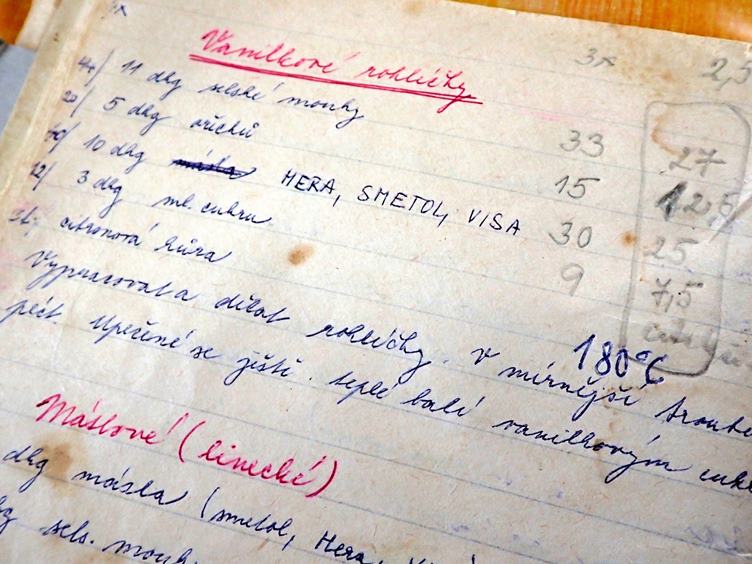 Vanilkové rohlíčky 3x 2,5
44/ 11 dkg selské mouky 33 27
20/ 5 dkg ořechů 15 12,5
40/ 10 dkg HERA, SMETOL, VISA 30 25
12/ 3 dkg ml. cukru 9 7,5
citronová kůra
Vypracovat a dělat rohlíčky. V mírnější troubě 180°C
péct. Upečené se ještě teplé balí vanilkovým cukr
Máslové (linecké)
dkg másla (smetol, Hera,
sels. mouky